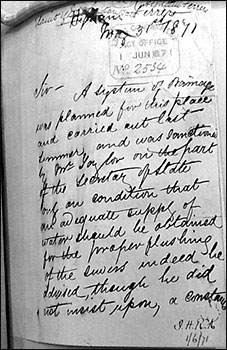 Higham Ferrers
May 31st 1871
ACT OFFICE
1 JUN 1871
No 2534
Sir - A system of Drainage
was planned for this place
and carried out last
Summer, and was sanctioned
by Mr Taylor on the part
of the Secretary of State
only on condition that
an adequate supply of
water should be obtained
for the proper flushing
of the sewers indeed he
advised, though he did
not insist upon, a constant
1/6/71